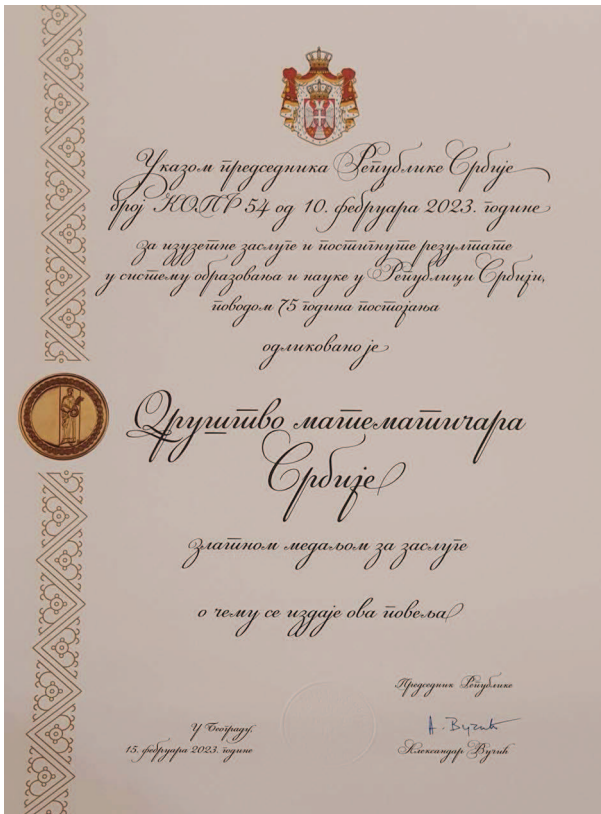 Указом председника Републике Србије
број КОПР 54 од 10. фебруара 2023. године
за изузетне заслуге и постигнуте резултате
у систему образовања и науке у Републици Србији,
поводом 75 година постојања
одликовано је
Друштво математичара
Србије
златном медаљом за заслуге
о чему се издаје ова повеља
Председник Републике
У Београду,
15. фебруара 2023. године
А. Вучић
Александар Вучић